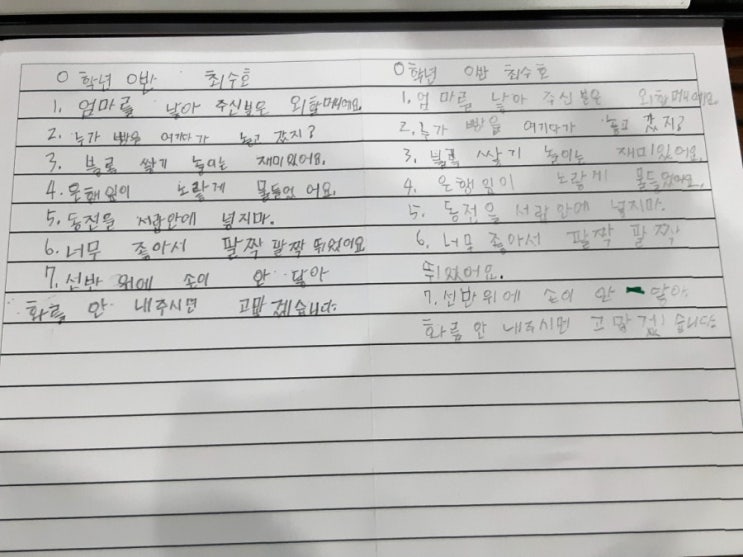 0 학년 0반 최수호
1. 엄마를 낳아 주신분은 외할머니에요.
2. 누가 빵을 여기다가 놓고 갔지?
3. 블록 쌓기 놀이는 재미있어요.
4. 은행잎이 노랗게 물들었어요.
5. 동전을 서랍안에 넣지마.
6. 너무 좋아서 팔짝팔짝 뛰었어요
7. 선반 위에 손이 안 닿아
화를 안 내주시면 고맙겠습니다.
0학년 0반 최수호
1. 엄마를 낳아 주신분은 외할머니에요.
2. 누가 빵을 여기다가 놓고 갔지?
3. 블록 쌓기 놀이는 재미있어요.
4. 은행잎이 노랗게 물들었어요.
5. 동전을 서랍안에 넣지마.
6. 너무 좋아서 팔짝 팔짝
뛰었어요.
7. 선반위에 손이 안 닿아
화를 안 내주시면 고맙겠습니다.